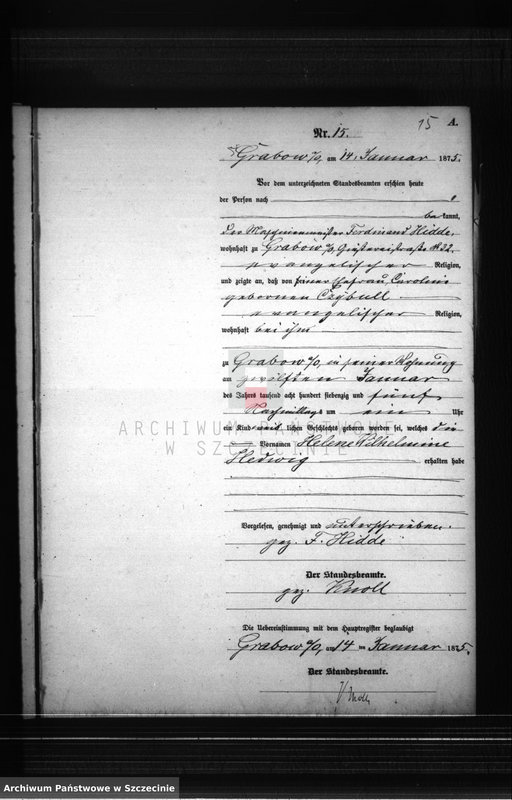 15 A.
Nr. 15.
Grabow a/O, am 14. Januar 1875.
Vor dem unterzeichneten Standesbeamten erschien heute
der Person nach
be kannt,
der Maschinenmeister Ferdinand Hidde,
wohnhaft zu Grabow a/O, Gießereistraße № 32,
evangelischer Religion,
und zeigte an, daß von seiner Ehefrau, Caroline
gebornen Czybull
evangelischer Religion,
wohnhaft bei ihm
zu Grabow a/O, in seiner Wohnung
am zwölften Januar
des Jahres tausend acht hundert siebenzig und fünf
Nachmittags um ein Uhr
ein Kind weib lichen Geschlechts geboren worden sei, welches die
Vornamen Helene Wilhelmine
Hedwig erhalten habe
Vorgelesen, genehmigt und unterschrieben.
gez. F. Hidde
Der Standesbeamte.
gez. Knoll
Die Uebereinstimmung mit dem Hauptregister beglaubigt
Grabow a/O, am 14 ten Januar 1875,
Der Standesbeamte.
Knoll
ARCHIWUM
W SZCZECINIE
Archiwum Państwowe w Szczecinie